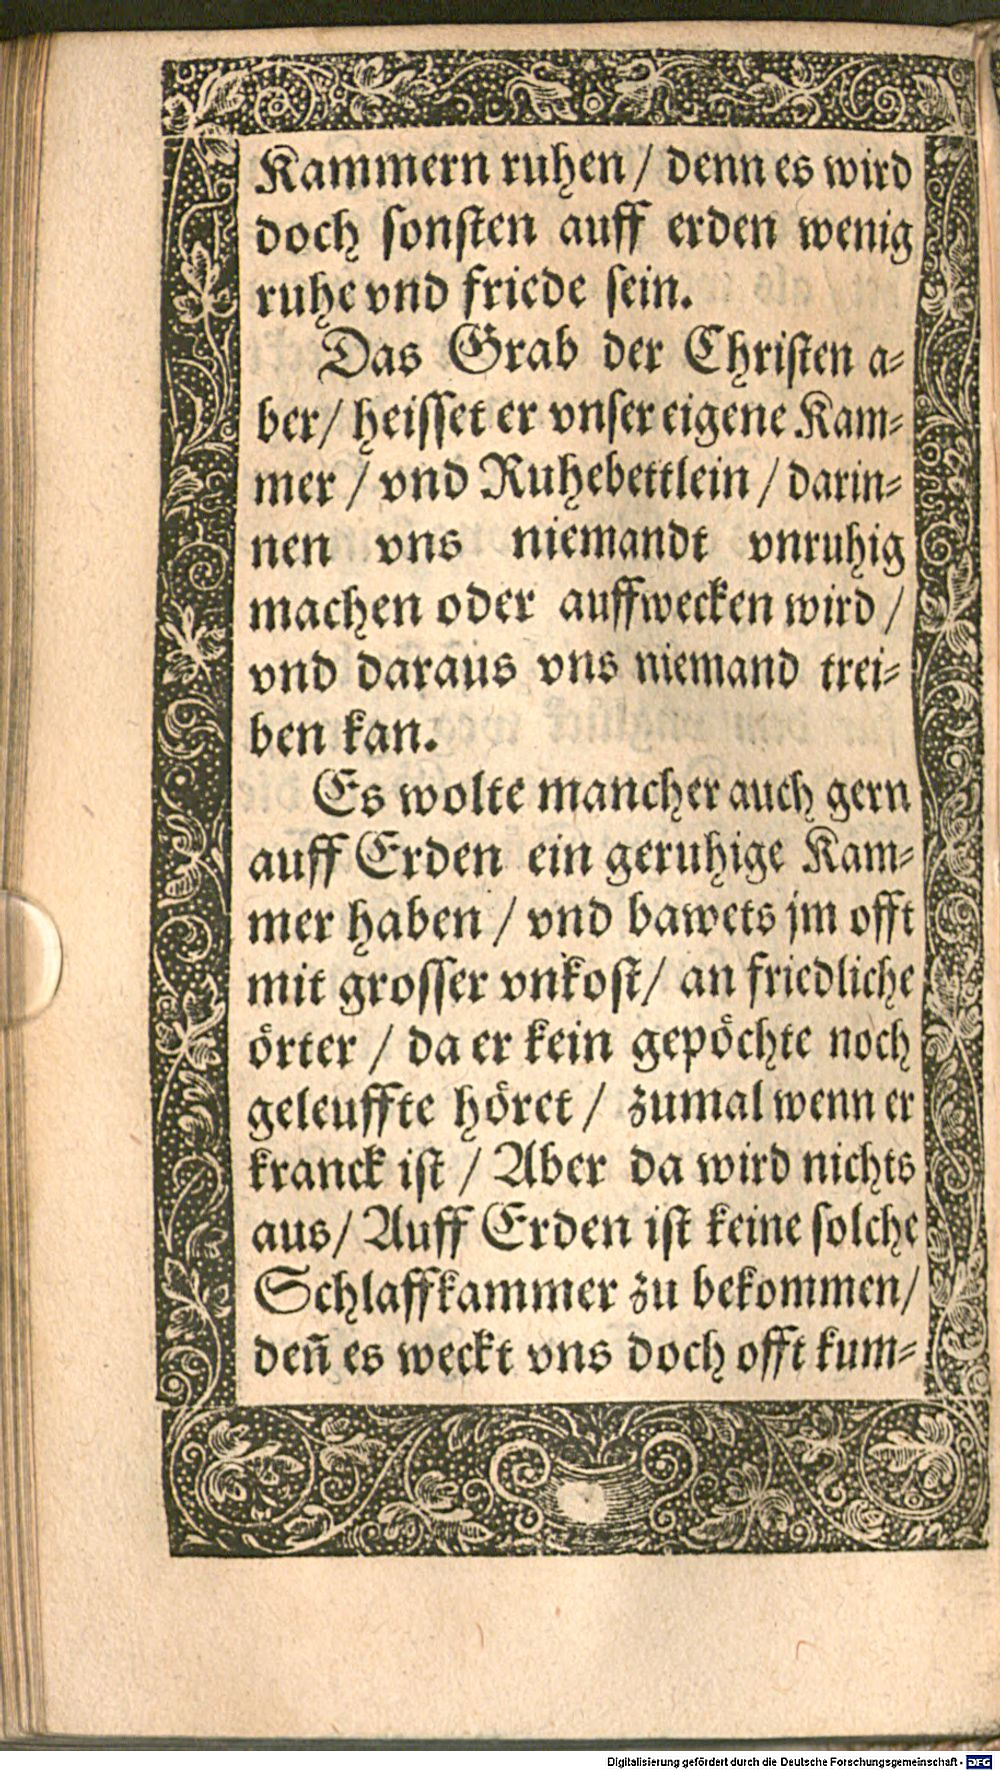 Kammern ruhen / denn es wird
doch sonsten auff erden wenig
ruhe vnd friede sein.
Das Grab der Christen a-
ber / heisset er vnser eigene Kam-
mer / vnd Ruhebettlein / darin-
nen vns niemandt vnruhig
machen oder auffwecken wird /
vnd daraus vns niemand trei-
ben kan.
Es wolte mancher auch gern
auff Erden ein geruhige Kam-
mer haben / vnd bawets jm offt
mit grosser vnkost / an friedliche
örter / da er kein gepöchte noch
geleuffte höret / zumal wenn er
kranck ist / Aber da wird nichts
aus / Auff Erden ist keine solche
Schlaffkammer zu bekommen /
den̄ es weckt vns doch offt kum-
Digitalisierung gefördert durch die Deutsche Forschungsgemeinschaft - DFG